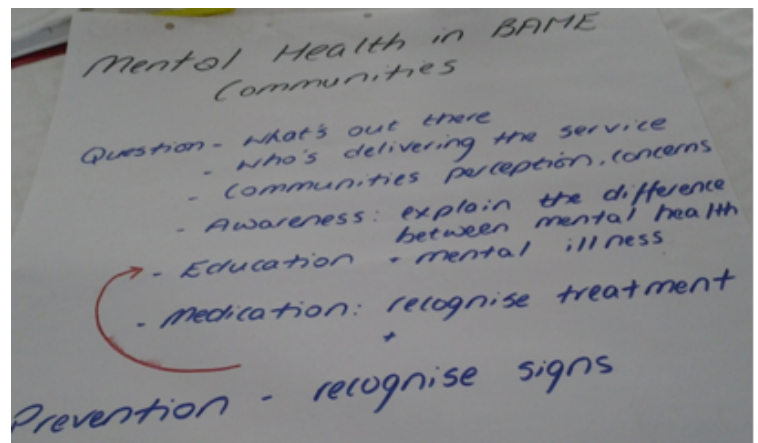 Mental Health in BAME
Communities
Question - what's out there
- who's delivering the service
- Communities perception, concerns
- Awareness: explain the difference
between mental health
- Education + mental illness
- Medication: recognise treatment
+
Prevention - recognise signs